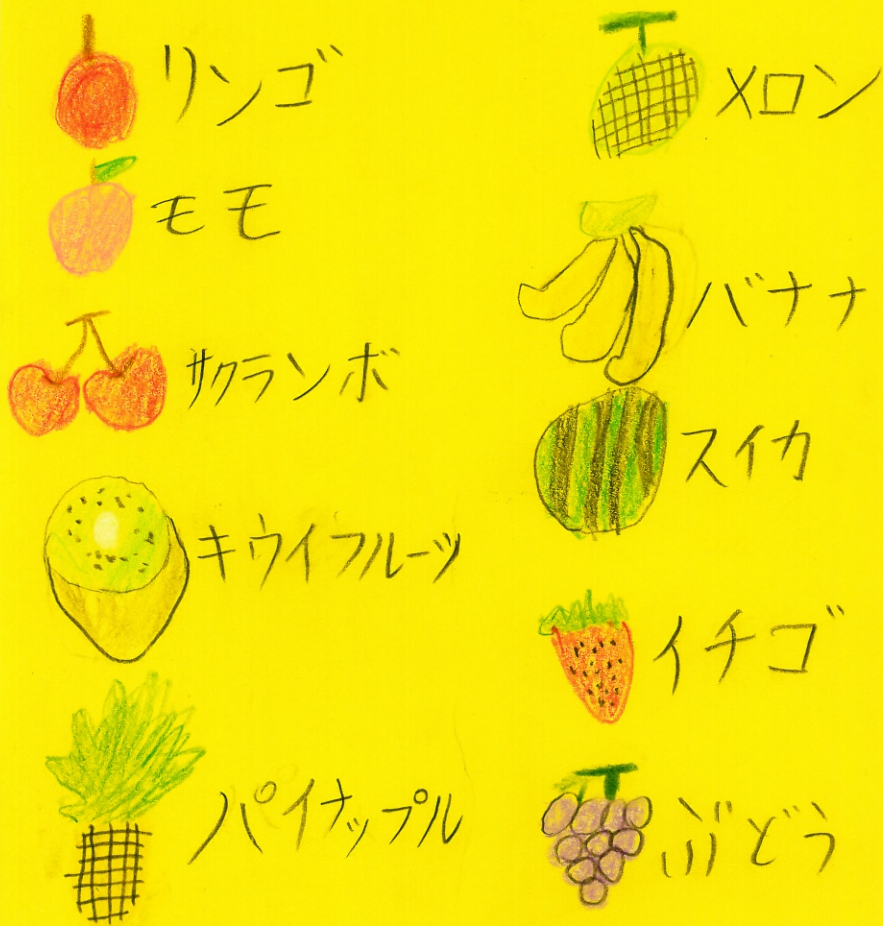 リンゴ
モモ
サクランボ
キウイフルーツ
パイナップル
メロン
バナナ
スイカ
イチゴ
ぶどう